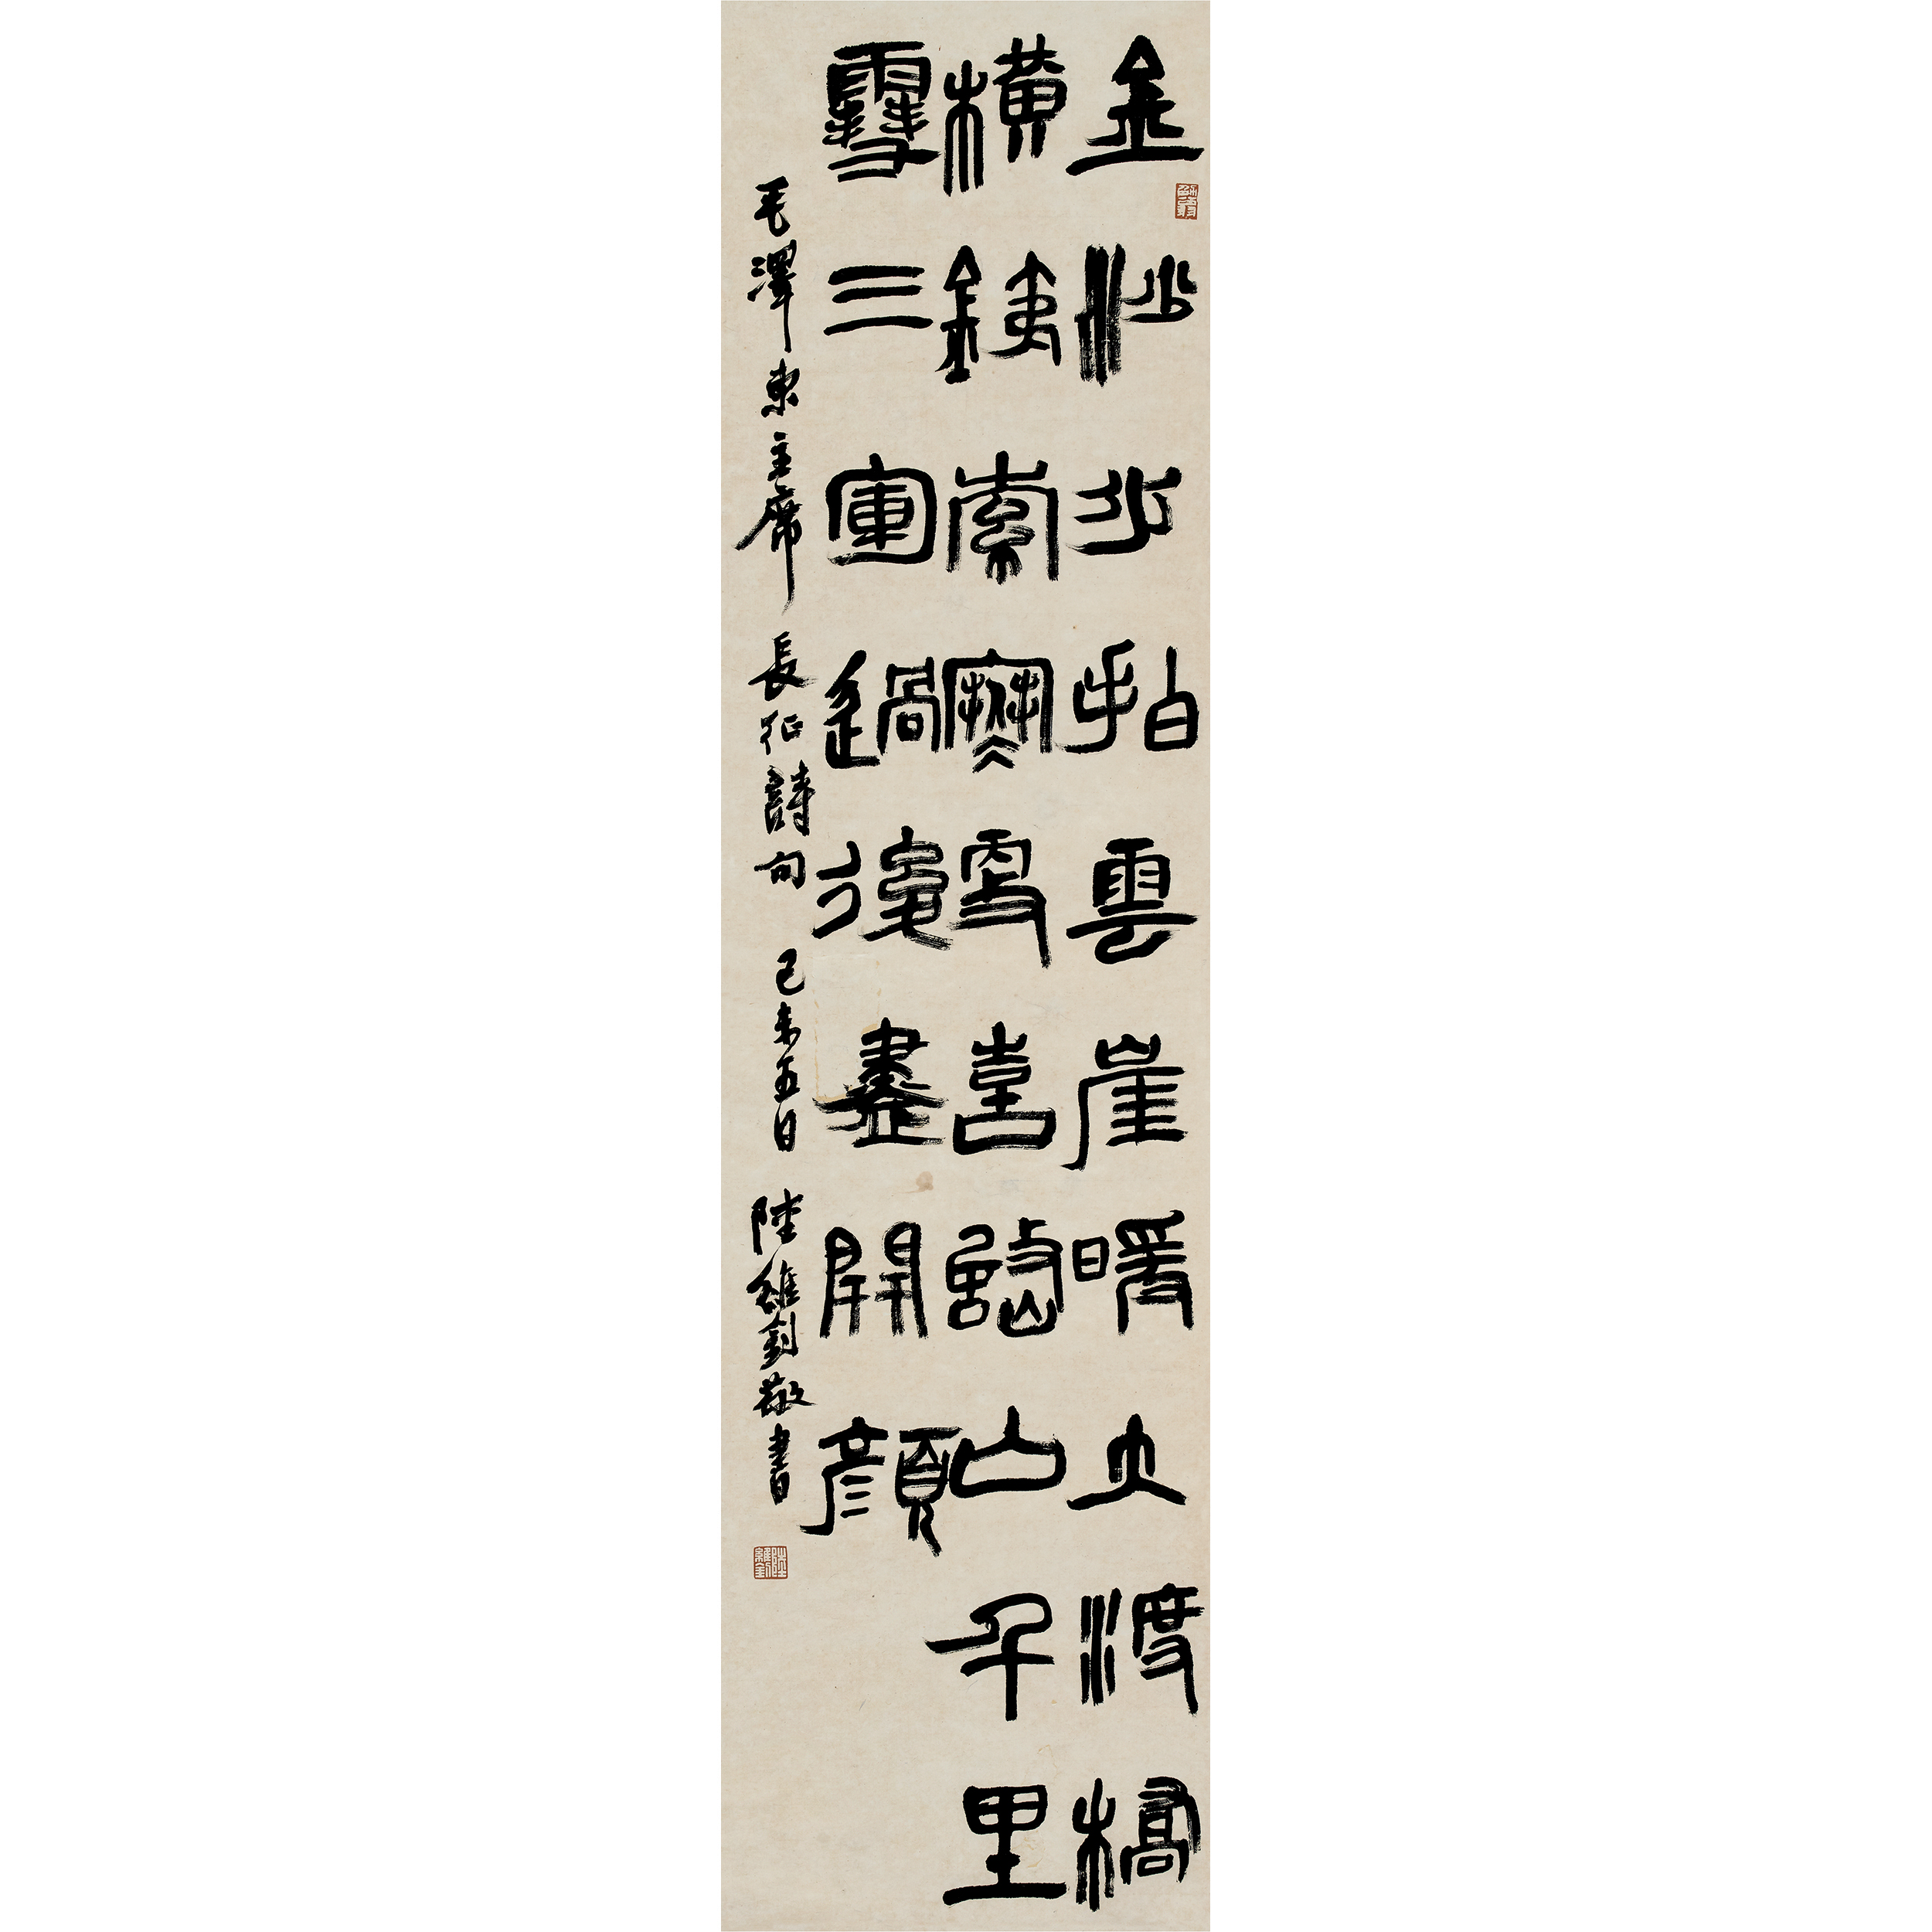 金沙水拍雲崖暖大渡橋
橫銕索寒更喜岷山千里
雪三軍過後盡開顏
毛澤東主席長征詩句 己未五日 陸維釗敬書
陸維釗